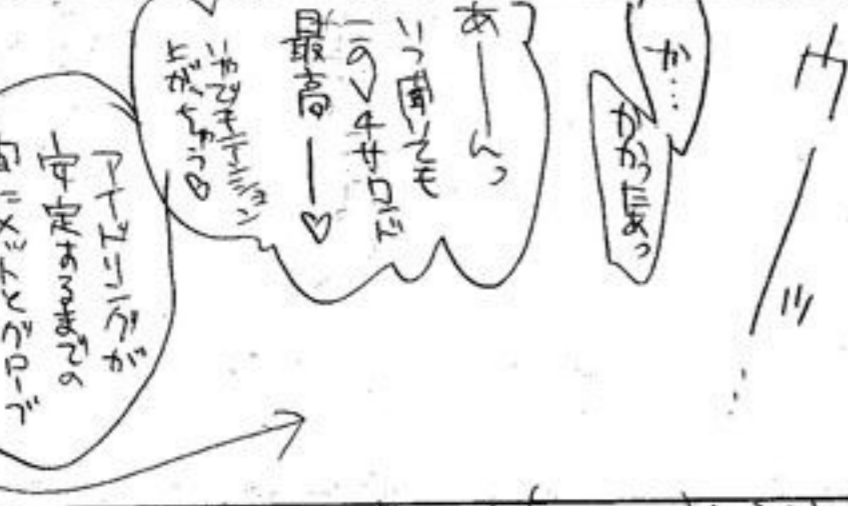 か…
かかったぁっ
あーーんっ
いつ聞いても
この♡4サウンド
最高ー♡
いやでもテンション
上がっちゃう♡
アイドリングが
安定するまでの
間にメットとグローブ